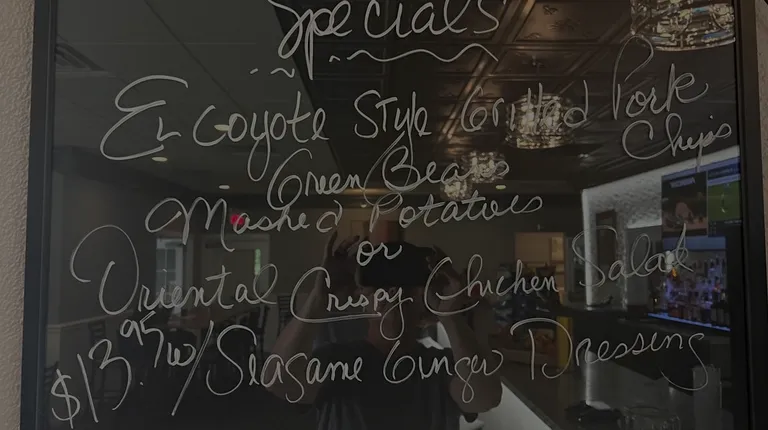 Specials
El Coyote Style Grilled Pork
Chips
Green Beans
Mashed Potatoes
or
Oriental Crispy Chicken Salad
$13.95 w/ Seasame Ginger Dressing